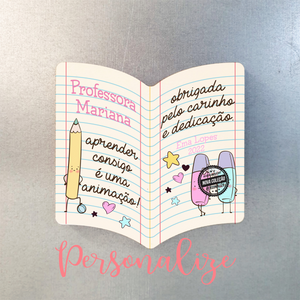 Professora
Mariana
aprender
consigo
é uma
animação!
obrigada
pelo carinho
e dedicação
Ema Lopes
NOVA COLEÇÃO
Personalize